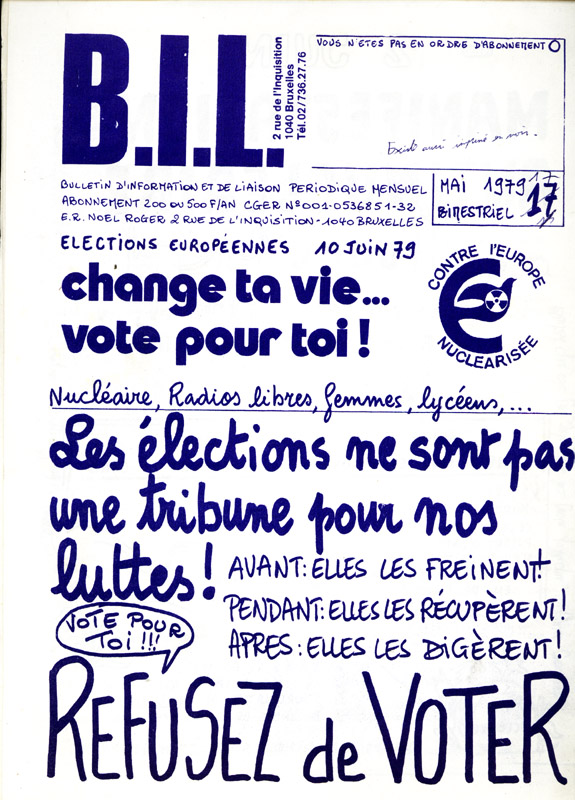 B.I.L.
2 rue de l'Inquisition
1040 Bruxelles
Tél. 02/736.27.76
VOUS N'ETES PAS EN ORDRE D'ABONNEMENT O
Existe aussi imprimé en noir.
BULLETIN D'INFORMATION ET DE LIAISON PERIODIQUE MENSUEL
ABONNEMENT 200 OU 500 F/AN CGER N°001.0536851-32
E.R. NOEL ROGER 2 RUE DE L'INQUISITION - 1040 BRUXELLES
MAI 1979 17
BIMESTRIEL 17
ELECTIONS EUROPÉENNES 10 JUIN 79
change ta vie...
vote pour toi !
CONTRE l'EUROPE
NUCLEARISÉE
Nucléaire, Radios libres, femmes, lycéens,...
Les élections ne sont pas
une tribune pour nos
luttes !
AVANT: ELLES LES FREINENT!
PENDANT: ELLES LES RÉCUPÈRENT!
APRES : ELLES LES DIGÈRENT!
VOTE POUR
TOI !!!
REFUSEZ de VOTER